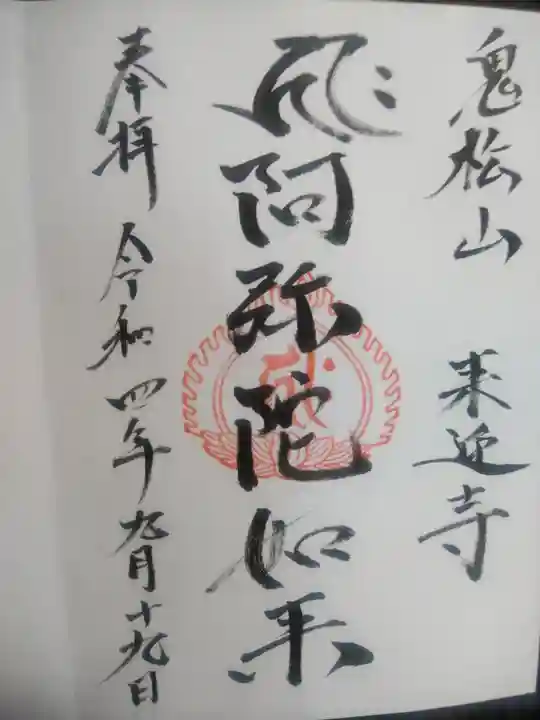 鬼松山 来迎寺
阿弥陀如来
奉拝 令和四年九月十九日